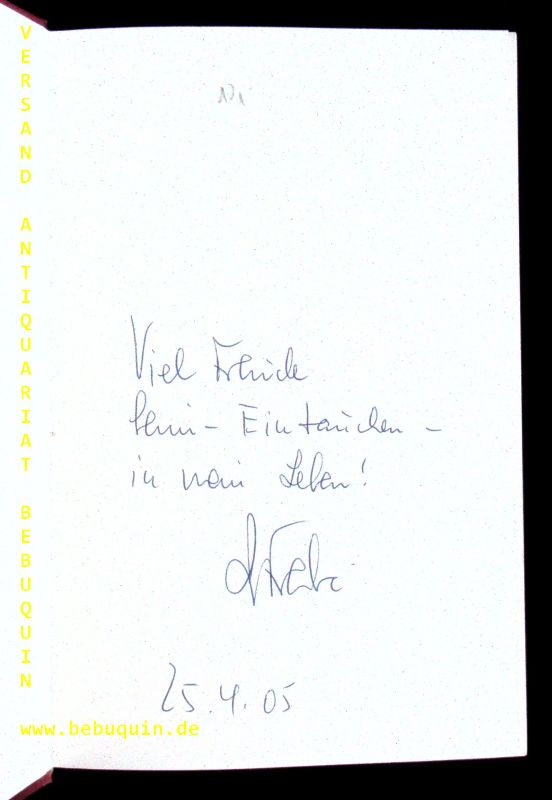 VERSAND ANTIQUARIAT BEBUQUIN
Viel Freude
beim - Eintauchen -
in mein Leben!
25.4.05
www.bebuquin.de